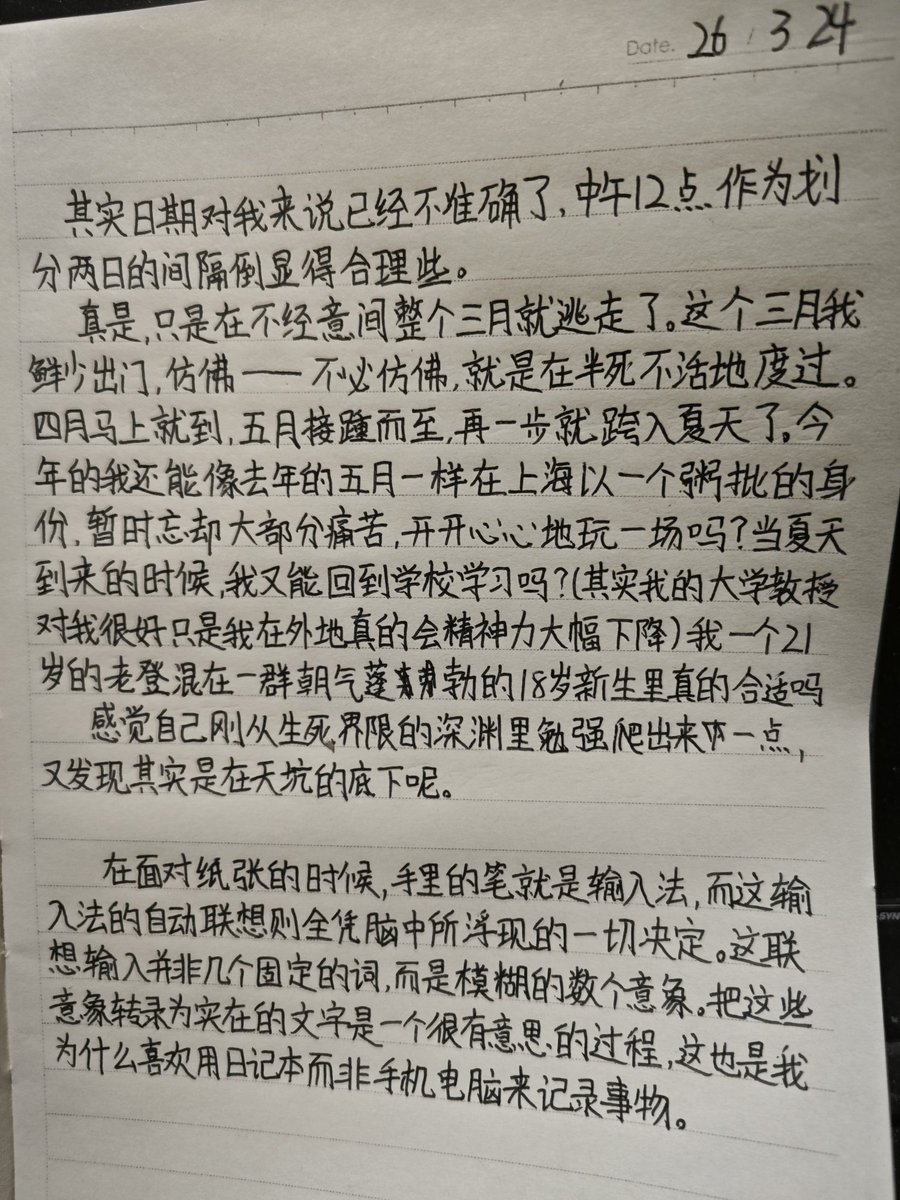 Date. 26 / 3 24
其实日期对我来说已经不准确了,中午12点作为划
分两日的间隔倒显得合理些。
真是,只是在不经意间整个三月就逃走了。这个三月我
鲜少出门,仿佛——不必仿佛,就是在半死不活地度过。
四月马上就到,五月接踵而至,再一步就跨入夏天了。今
年的我还能像去年的五月一样在上海以一个粥批的身
份,暂时忘却大部分痛苦,开开心心地玩一场吗?当夏天
到来的时候,我又能回到学校学习吗?(其实我的大学教授
对我很好只是我在外地真的会精神力大幅下降)我一个21
岁的老登混在一群朝气蓬勃的18岁新生里真的合适吗
感觉自己刚从生死界限的深渊里勉强爬出来一点,
又发现其实是在天坑的底下呢。
在面对纸张的时候,手里的笔就是输入法,而这输
入法的自动联想则全凭脑中所浮现的一切决定。这联
想输入并非几个固定的词,而是模糊的数个意象。把这些
意象转录为实在的文字是一个很有意思的过程,这也是我
为什么喜欢用日记本而非手机电脑来记录事物。